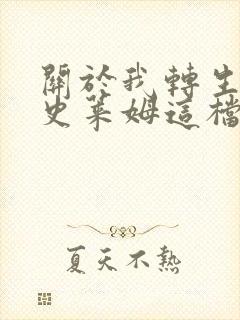 關於我轉生
史萊姆這檔
夏天不熱